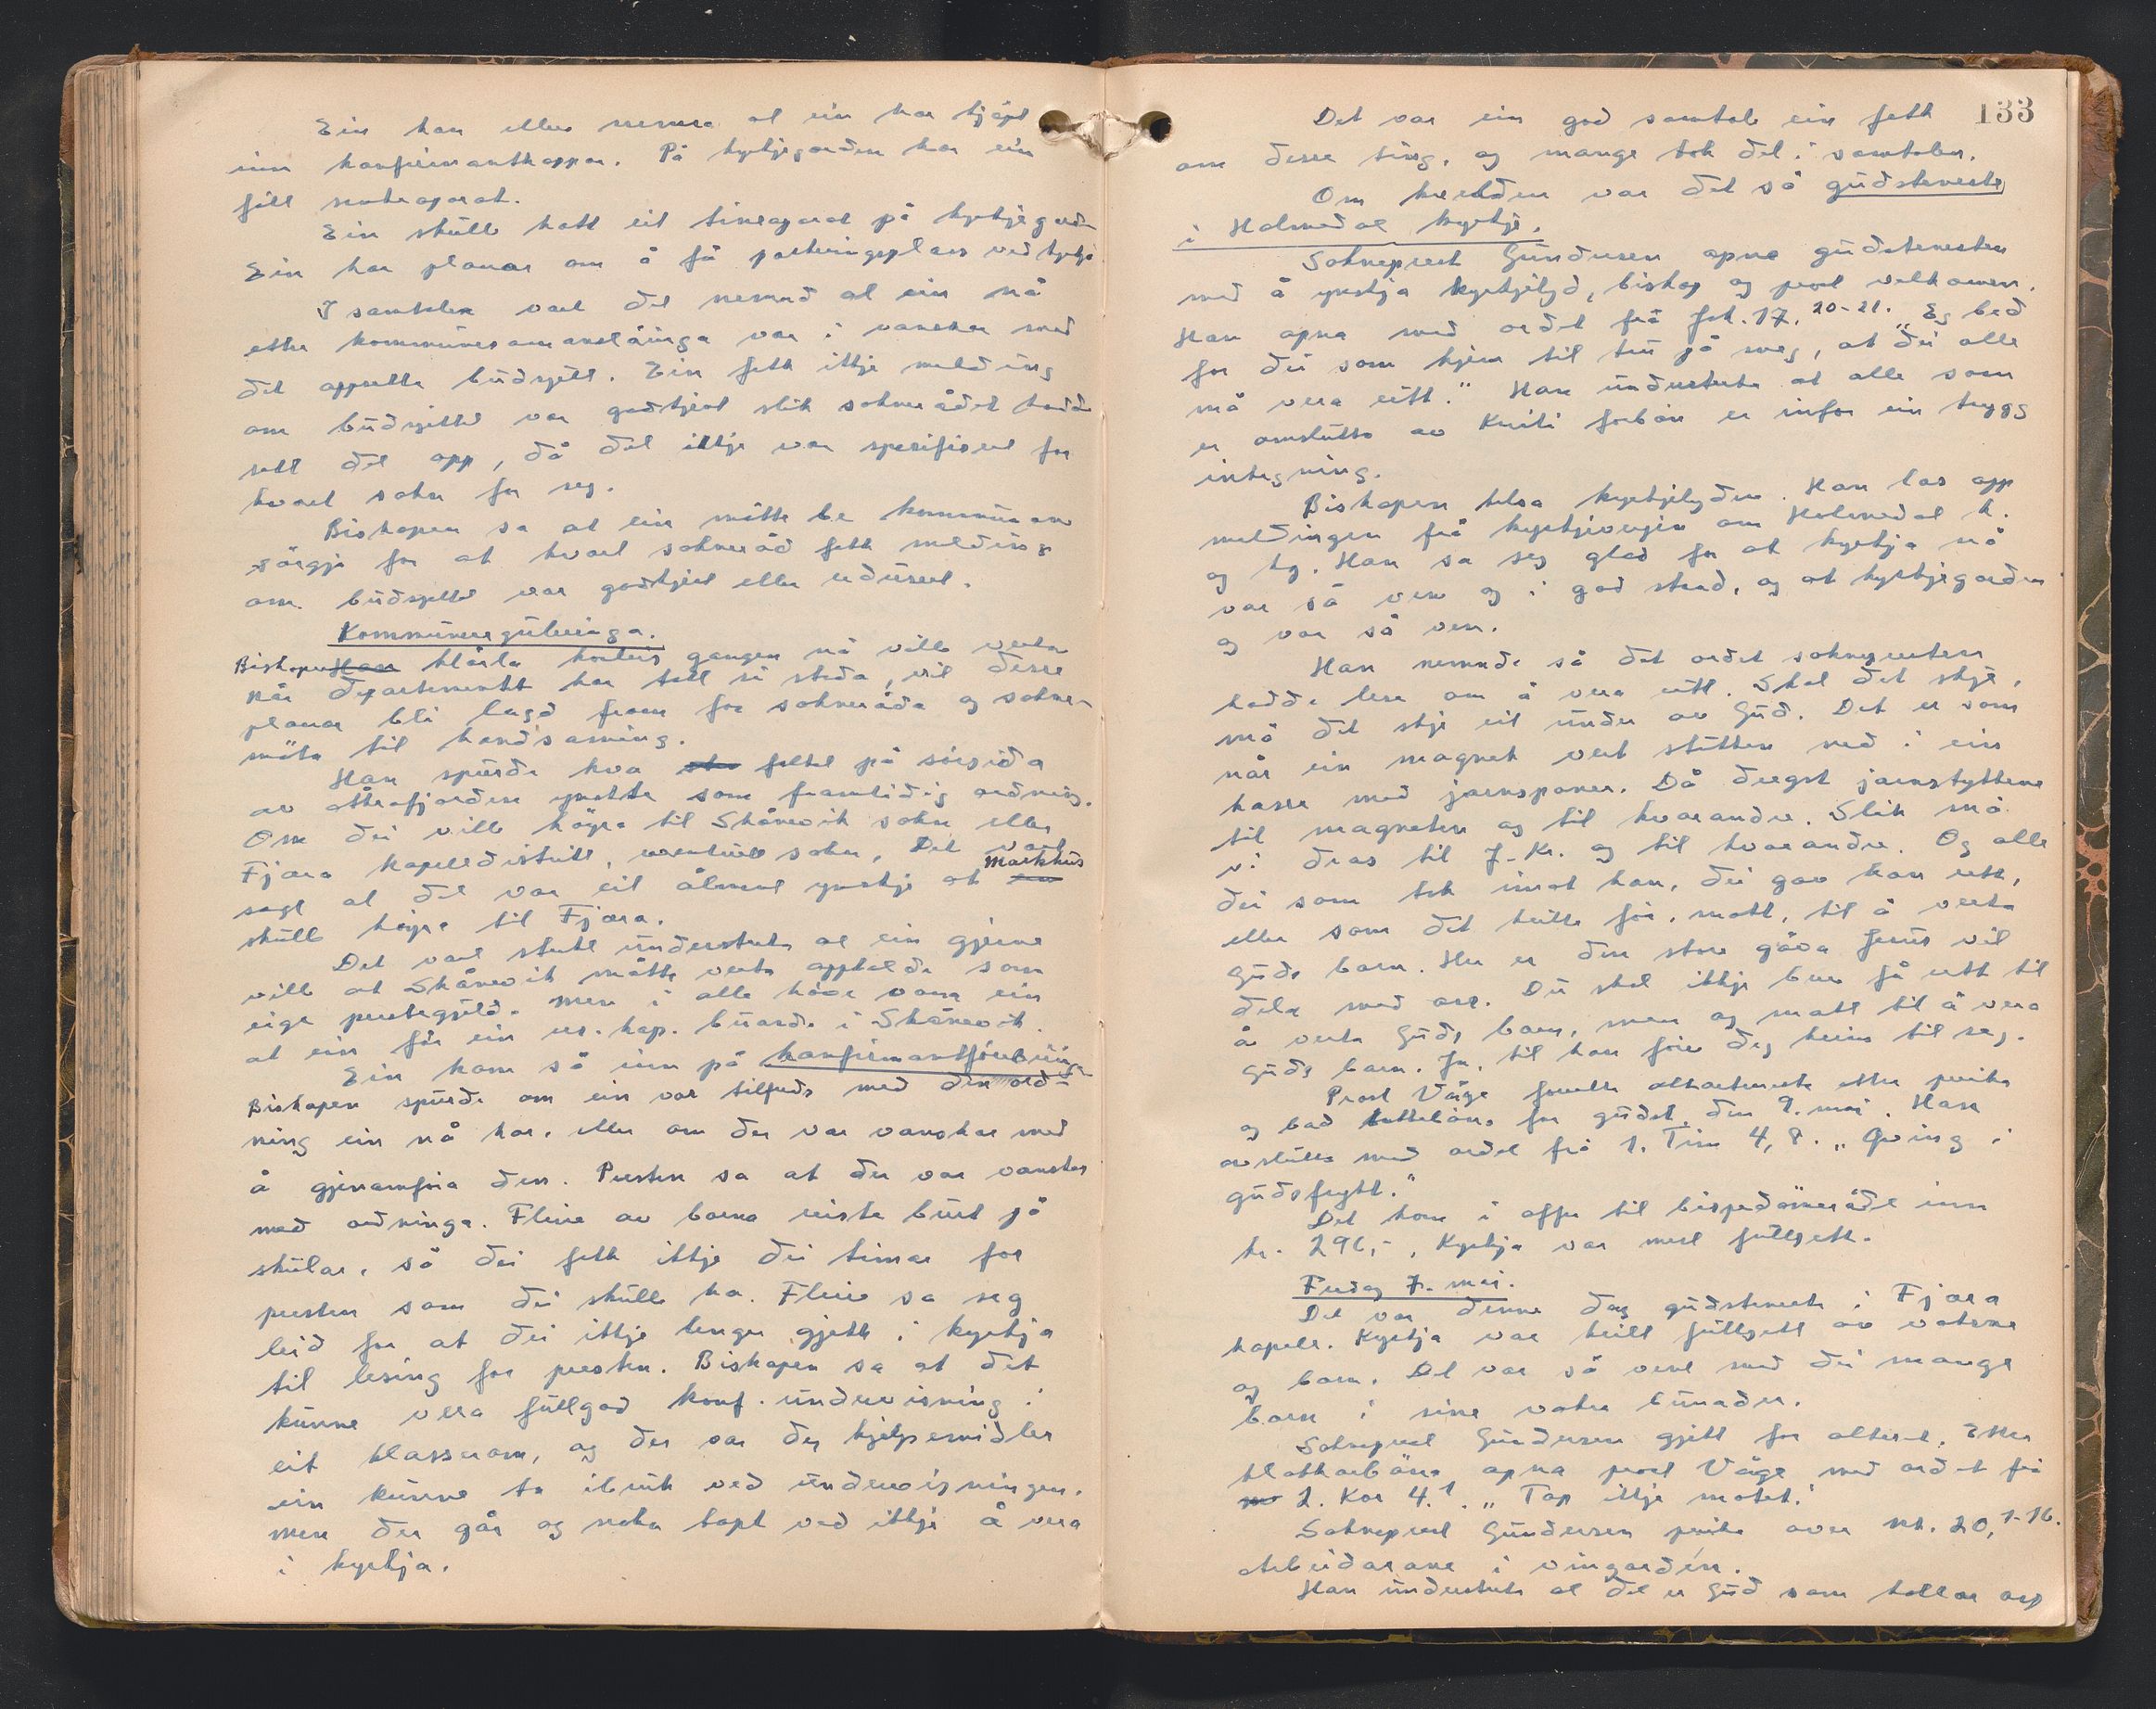 Ein kan elles nemna at ein har kjøpt
inn konfirmantkappor. På kyrkjegarden har ein
fått senkeapparat.
Ein skulle hatt eit tineapparat på kyrkjegarden
Ein har planar om å få parkeringsplass ved kyrkja
I samtalen vart det nemnd at ein nå
etter kommunesamanslåinga var i vanskar med
det oppsette budsjett. Ein fekk ikkje melding
om budsjettet var godkjent slik sokneråðet hadde
sett det opp, då det ikkje var spesifisert for
kvart sokn for seg.
Biskopen sa at ein måtte be kommunane
sørgje for at kvart sokneråd fekk melding
om budsjettet var godkjent eller redusert.
Kommunereguleringa.
Biskopen Han klårla korleis gangen nå ville verta
Når departementet har tatt si støda, vil desse
planar bli lagd fram for sokneråda og sokne-
møta til handsaming.
Han spurde kva folket på sørsida
av Åkrafjorden ynskte som framtidig ordning.
Om dei ville høyra til Skånevik sokn eller
Fjæra kapelldistrikt, eventuelt sokn. Det vart
sagt at det var eit ålment ynskje at Markhus
skulle høyra til Fjæra.
Det vart sterkt understreka at ein gjerne
ville at Skånevik måtte verta oppheldt som
eige prestegjeld. Men i alle høve vona ein
at ein får ein res. kap. buande i Skånevik.
Ein kom så inn på konfirmantførebuinga
Biskopen spurde om ein var tilfreds med den ord-
ning ein nå har, eller om der var vanskar med
å gjenamføra den. Presten sa at der var vanskar
med ordninga. Fleire av borna reiste burt på
skular, så dei fekk ikkje dei timar for
presten som dei skulle ha. Fleire sa seg
leid for at dei ikkje lenger gjekk i kyrkja
til lesing for presten. Biskopen sa at det
kunne vera fullgod konf. undervisning i
eit klasserom, og der var dei hjelpemidler
ein kunne ta ibruk ved undervisningen.
Men der går og noko tapt ved ikkje å vera
i kyrkja.
133
Det var ein god samtale ein fekk
om desse ting, og mange tok del i samtalen.
Om kvelden var det så gudsteneste
i Holmedal kyrkje.
Sokneprest Gundersen opna gudstenesten
med å ynskja kyrkjelyd, biskop og prost velkomen.
Han opna med ordet frå Joh. 17, 20-21. "Eg bed
for dei som kjem til tru på meg, at dei alle
må vera eitt." Han understreka at alle som
er omslutta av Kristi forbøn er infor ein trygg
inhegning.
Biskopen helsa kyrkjelyden. Han las opp
meldingen frå kyrkjeverjen om Holmedal k.
og kg. Han sa seg glad for at kyrkja nå
var så ven og i god stand, og at kyrkjegarden
og var så ven.
Han nemnde så det ordet soknepresten
hadde lese om å vera eitt. Skal det skje,
må det skje eit under av Gud. Det er som
når ein magnet vert stukken ned i ein
kasse med jarnsponer. Då dregst jarnstykkene
til magneten og til kvarandre. Slik må
vi dras til J. Kr. og til kvarandre. Og alle
dei som tok imot han, dei gav han rett,
eller som det heitte før, makt, til å verta
Guds barn. Her er den store gåva Jesus vil
dela med oss. Du skal ikkje bere få rett til
å verta Guds barn, men og makt til å vera
Guds barn. Ja, til han fører deg heim til seg.
Prost Våge forretta altartenesta etter preika
og bad kollektbøna for gudst. den 9. mai. Han
avslutta med ordet frå 1. Tim 4, 8. "Øv deg i
gudsfrykt."
Det kom i offer til bispedømerådet inn
kr. 296,-, Kyrkja var mest fullsett.
Fredag 7. mai.
Det var denne dag gudsteneste i Fjæra
kapell. Kyrkja var heilt fullsett av vaksne
og born. Det var så vent med dei mange
born i sine vakre bunader.
Sokneprest Gundersen gjekk for alteret. Etter
klokkarbøna, opna prost Våge med ordet frå
2. Kor 4, 1. "Tap ikkje motet."
Sokneprest Gundersen preika over Mt. 20, 1-16.
Arbeidarane i vingarden.
Han understreka at det er Gud som kallar oss